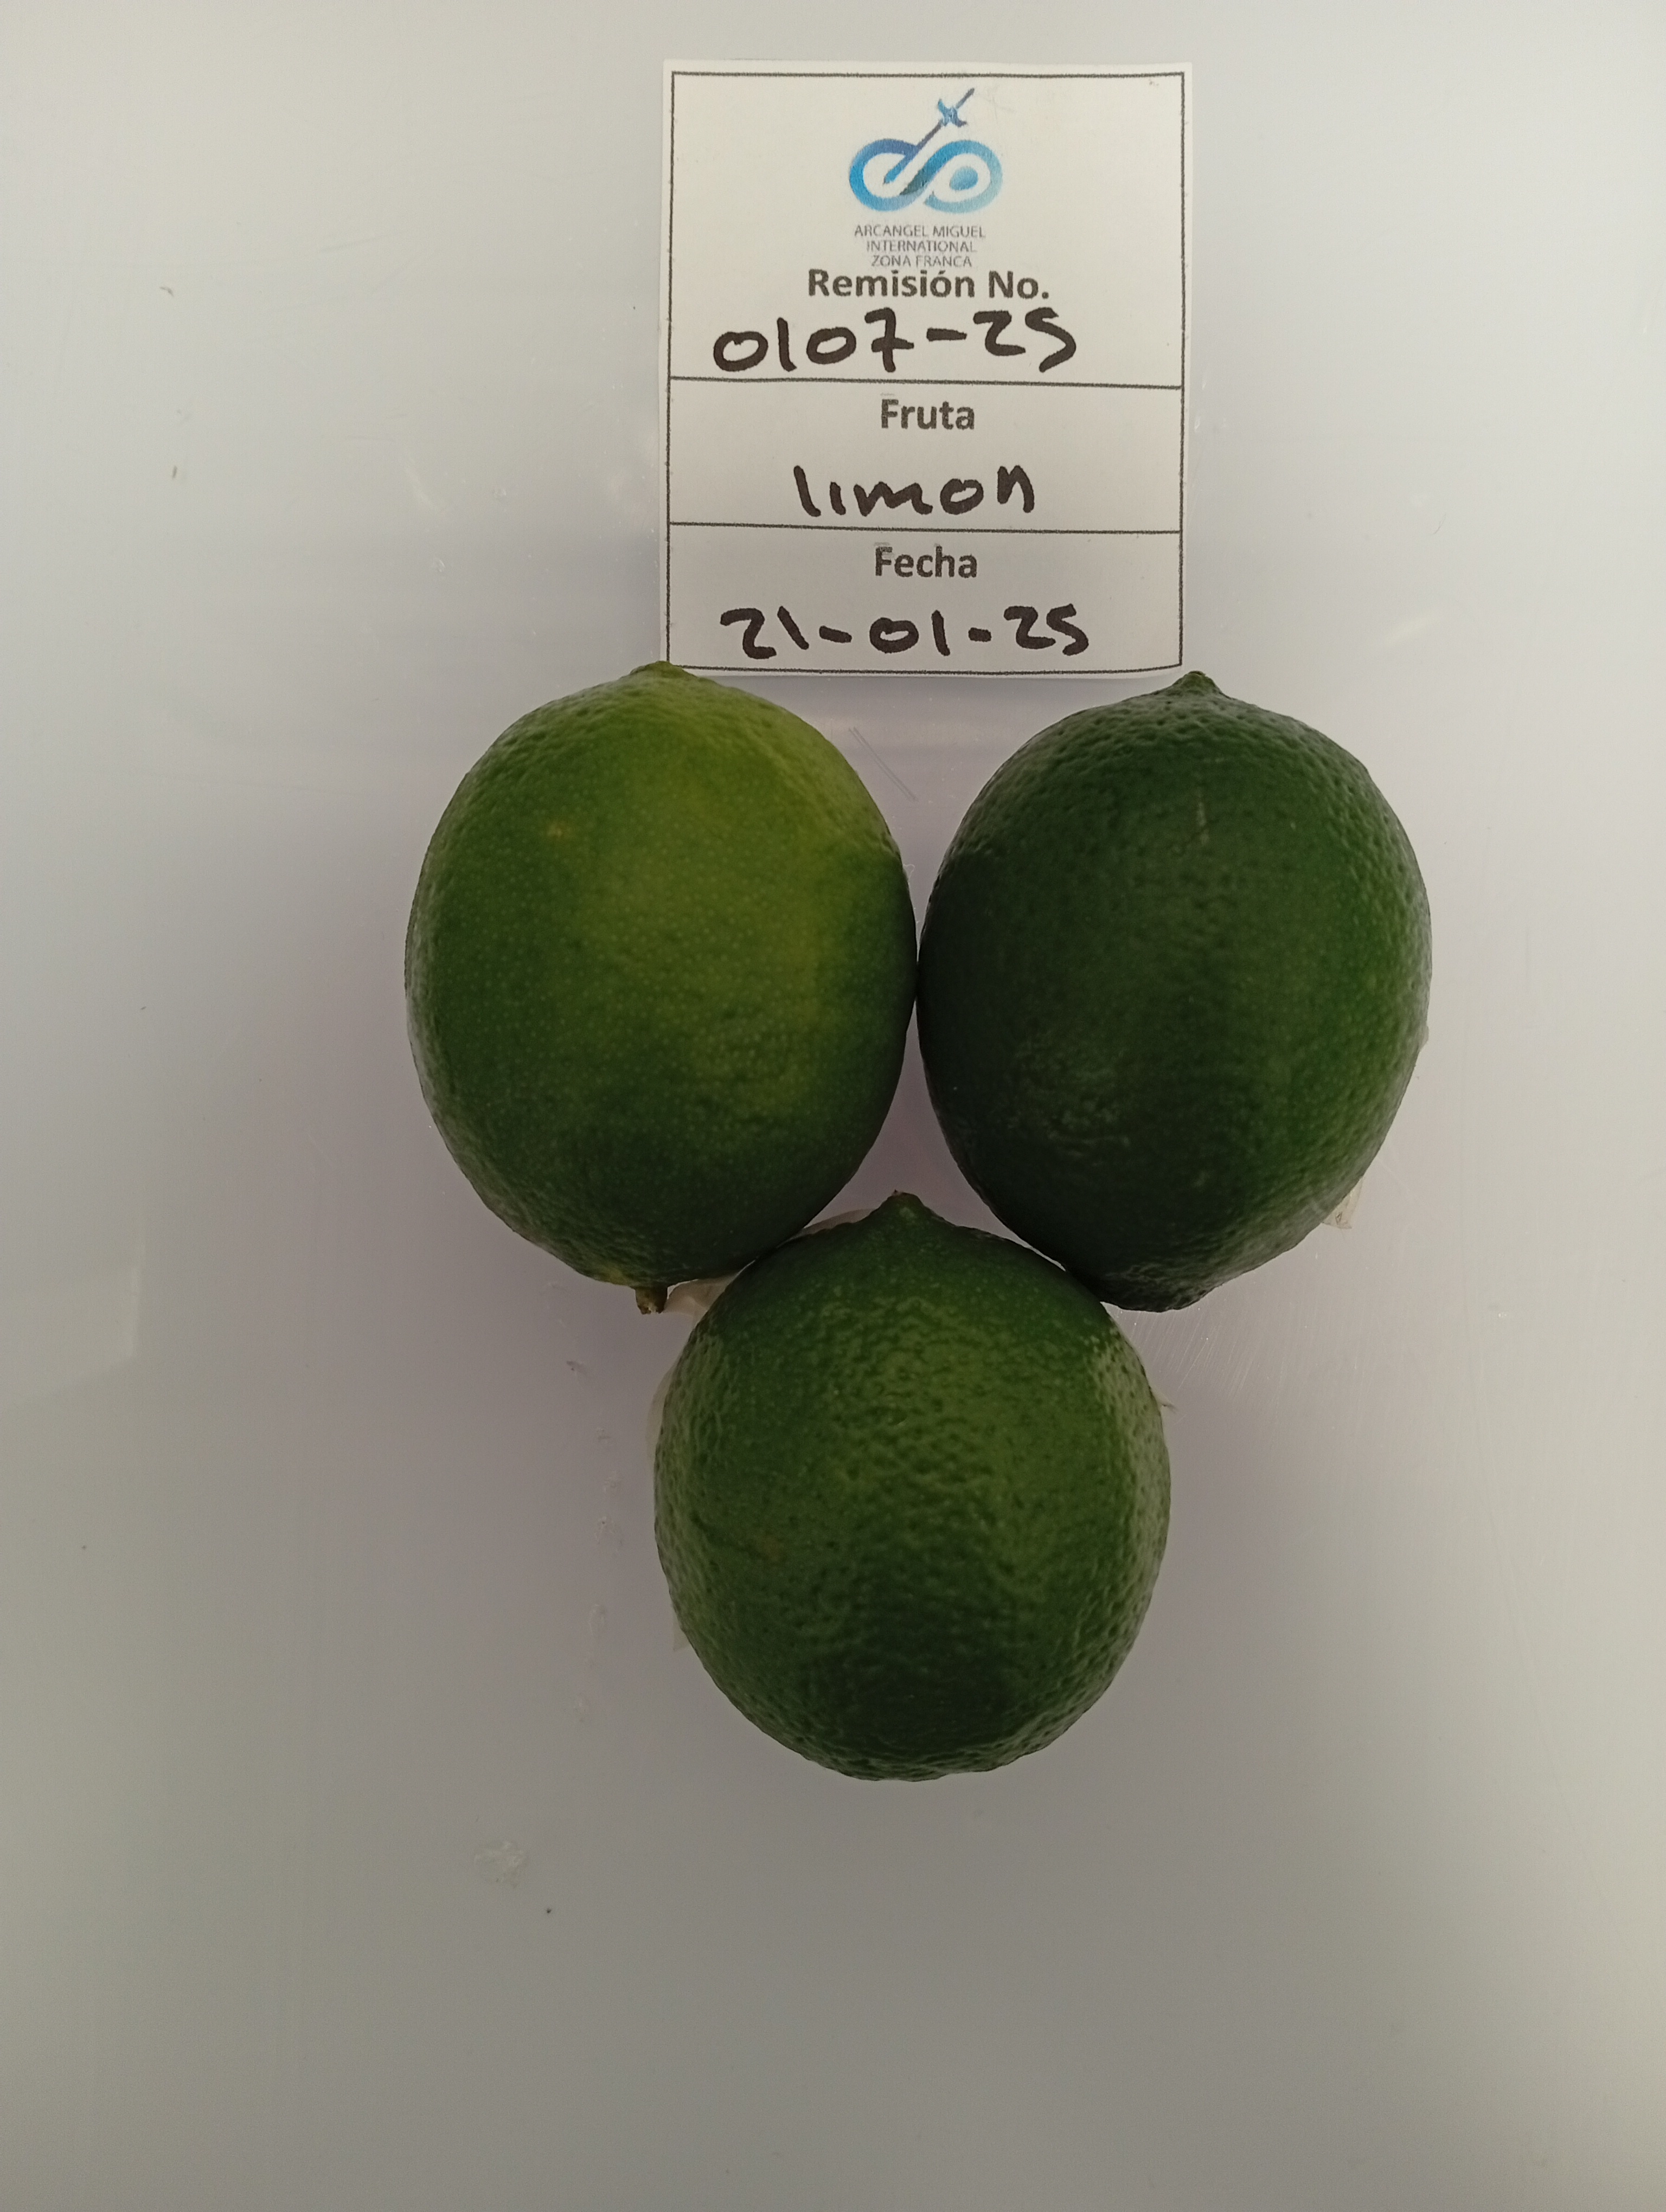 ARCANGEL MIGUEL
INTERNATIONAL
ZONA FRANCA
Remisión No.
0107-25
Fruta
limon
Fecha
21-01-25